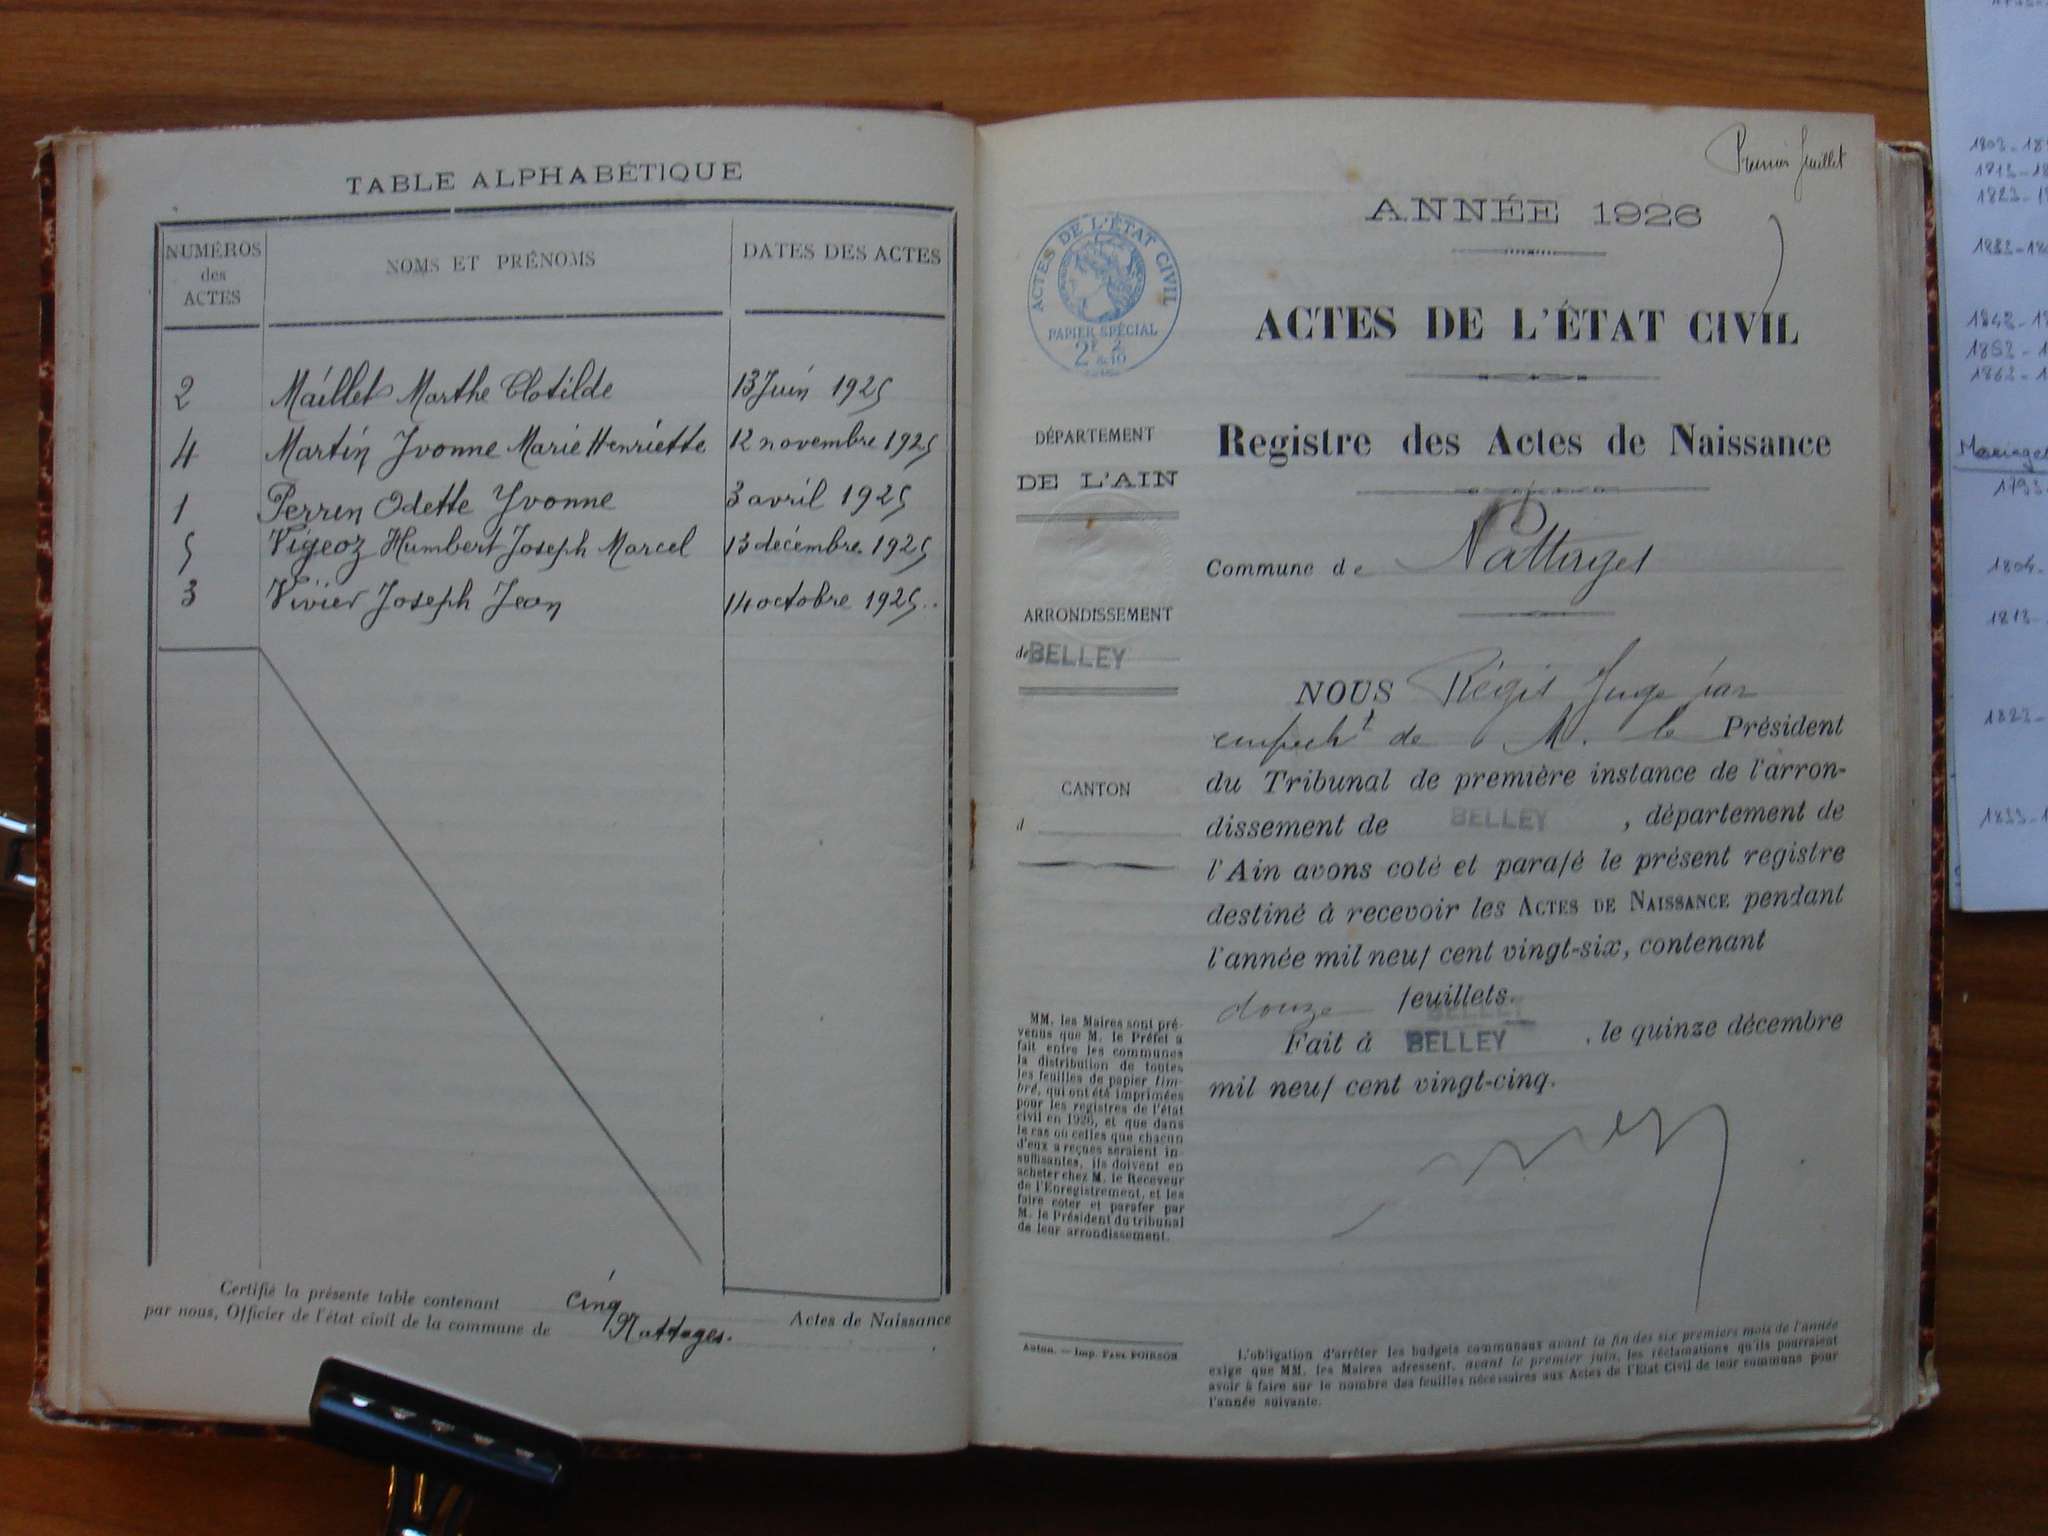 TABLE ALPHABÉTIQUE
NUMÉROS des ACTES NOMS ET PRÉNOMS DATES DES ACTES
2 Maillet Marthe Clotilde 13 Juin 1925
4 Martin Yvonne Marie Henriette 12 novembre 1925
1 Perrin Odette Yvonne 3 avril 1925
5 Vigeoz Humbert Joseph Marcel 13 décembre 1925
3 Vivier Joseph Jean 14 octobre 1925..
Certifié la présente table contenant cinq Actes de Naissance
par nous, Officier de l'état civil de la commune de Nattages.
Premier feuillet
ANNÉE 1926
ACTES DE L'ÉTAT CIVIL
PAPIER SPÉCIAL
ACTES DE L'ÉTAT CIVIL
Registre des Actes de Naissance
DÉPARTEMENT
DE L'AIN
Commune de Nattages
ARRONDISSEMENT
de BELLEY
CANTON
d
NOUS Régis Juge par
empecht de M. le Président
du Tribunal de première instance de l'arron-
dissement de BELLEY, département de
l'Ain avons coté et parafé le présent registre
destiné à recevoir les ACTES DE NAISSANCE pendant
l'année mil neuf cent vingt-six, contenant
douze feuillets.
Fait à BELLEY, le quinze décembre
mil neuf cent vingt-cinq.
MM. les Maires sont pré-
venus que M. le Préfet a
fait entre les communes
la distribution de toutes
les feuilles de papier tim-
bré, qui ont été imprimées
pour les registres de l'état
civil en 1926, et que dans
le cas où celles que chacun
d'eux a reçues seraient in-
suffisantes, ils doivent en
acheter chez M. le Receveur
de l'Enregistrement, et les
faire coter et parafer par
M. le Président du tribunal
de leur arrondissement.
Imp. PAUL POIRSON
L'obligation d'arrêter les budgets communaux avant la fin des six premiers mois de l'année
exige que MM. les Maires adressent, avant le premier juin, les réclamations qu'ils pourraient
avoir à faire sur le nombre des feuilles nécessaires aux Actes de l'État Civil de leur commune pour
l'année suivante.
1843-
1853-
1863-
1793-
1804-
1813-
1823-